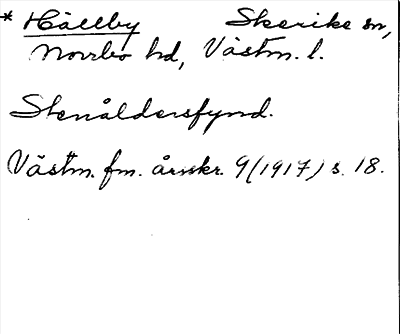 * Hällby Skerike sn,
Norrbo hd, Västm. l.
Stenåldersfynd.
Västm. fm. årsskr. 9(1917) s. 18.